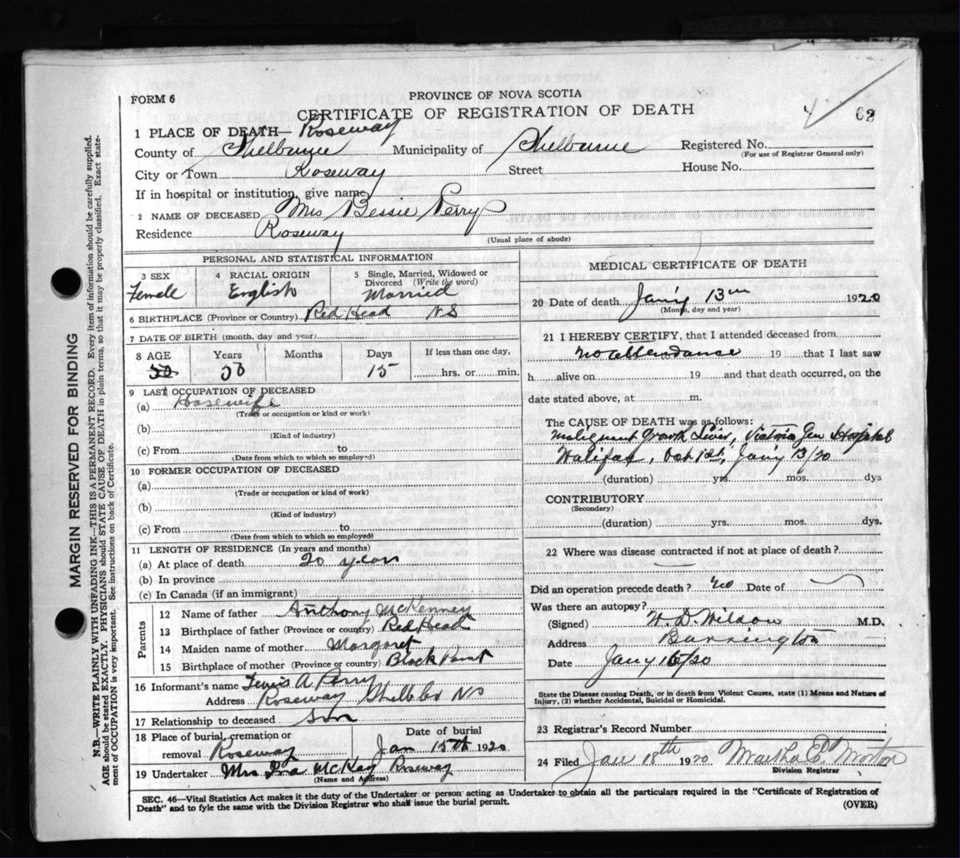 FORM 6
PROVINCE OF NOVA SCOTIA
CERTIFICATE OF REGISTRATION OF DEATH
62
1 PLACE OF DEATH— Roseway
County of Shelburne Municipality of Shelburne Registered No.
(For use of Registrar General only)
City or Town Roseway Street House No.
If in hospital or institution, give name
2 NAME OF DECEASED Mrs Bessie Perry
Residence Roseway
(Usual place of abode)
PERSONAL AND STATISTICAL INFORMATION
3 SEX 4 RACIAL ORIGIN 5 Single, Married, Widowed or Divorced (Write the word)
Female English Married
6 BIRTHPLACE (Province or Country) Red Head NS
7 DATE OF BIRTH (month, day and year)
8 AGE Years Months Days If less than one day,
50 50 15 hrs. or min.
9 LAST OCCUPATION OF DECEASED
(a) Housewife
(Trade or occupation or kind or work)
(b)
(Kind of industry)
(c) From to
(Date from which to which so employed)
10 FORMER OCCUPATION OF DECEASED
(a)
(Trade or occupation or kind of work)
(b)
(Kind of industry)
(c) From to
(Date from which to which so employed)
11 LENGTH OF RESIDENCE (In years and months)
(a) At place of death 20 years
(b) In province
(c) In Canada (if an immigrant)
Parents
12 Name of father Anthony McKenney
13 Birthplace of father (Province or country) Red Head
14 Maiden name of mother Margaret
15 Birthplace of mother (Province or country) Black Point
16 Informant's name Lewis A Perry
Address Roseway Shelb Co NS
17 Relationship to deceased Son
18 Place of burial, cremation or removal Roseway
Date of burial Jan 15th 1920
19 Undertaker Mrs McKay Roseway
(Name and Address)
MEDICAL CERTIFICATE OF DEATH
20 Date of death Jan'y 13th 1920
(Month, day and year)
21 I HEREBY CERTIFY, that I attended deceased from
no attendance 19 that I last saw
h alive on 19 and that death occurred, on the
date stated above, at m.
The CAUSE OF DEATH was as follows:
Malignant Growth Liver, Victoria Gen Hospital
Halifax, Oct 1st, Jan'y 13/20
(duration) yrs. mos. dys
CONTRIBUTORY
(Secondary)
(duration) yrs. mos. dys.
22 Where was disease contracted if not at place of death?
Did an operation precede death? no Date of
Was there an autopsy?
(Signed) W. D. Wilson M.D.
Address Barrington
Date Jany 16/20
State the Disease causing Death, or in death from Violent Causes, state (1) Means and Nature of
Injury, (2) whether Accidental, Suicidal or Homicidal.
23 Registrar's Record Number
24 Filed Jan 18th 1920 Martha E Morton
Division Registrar
SEC. 46—Vital Statistics Act makes it the duty of the Undertaker or person acting as Undertaker to obtain all the particulars required in the "Certificate of Registration of
Death" and to fyle the same with the Division Registrar who shall issue the burial permit.
(OVER)
MARGIN RESERVED FOR BINDING
N.B.—WRITE PLAINLY WITH UNFADING INK—THIS IS A PERMANENT RECORD. Every item of information should be carefully supplied.
AGE should be stated EXACTLY. PHYSICIANS should STATE CAUSE OF DEATH in plain terms, so that it may be properly classified. Exact state-
ment of OCCUPATION is very important. See instructions on back of Certificate.